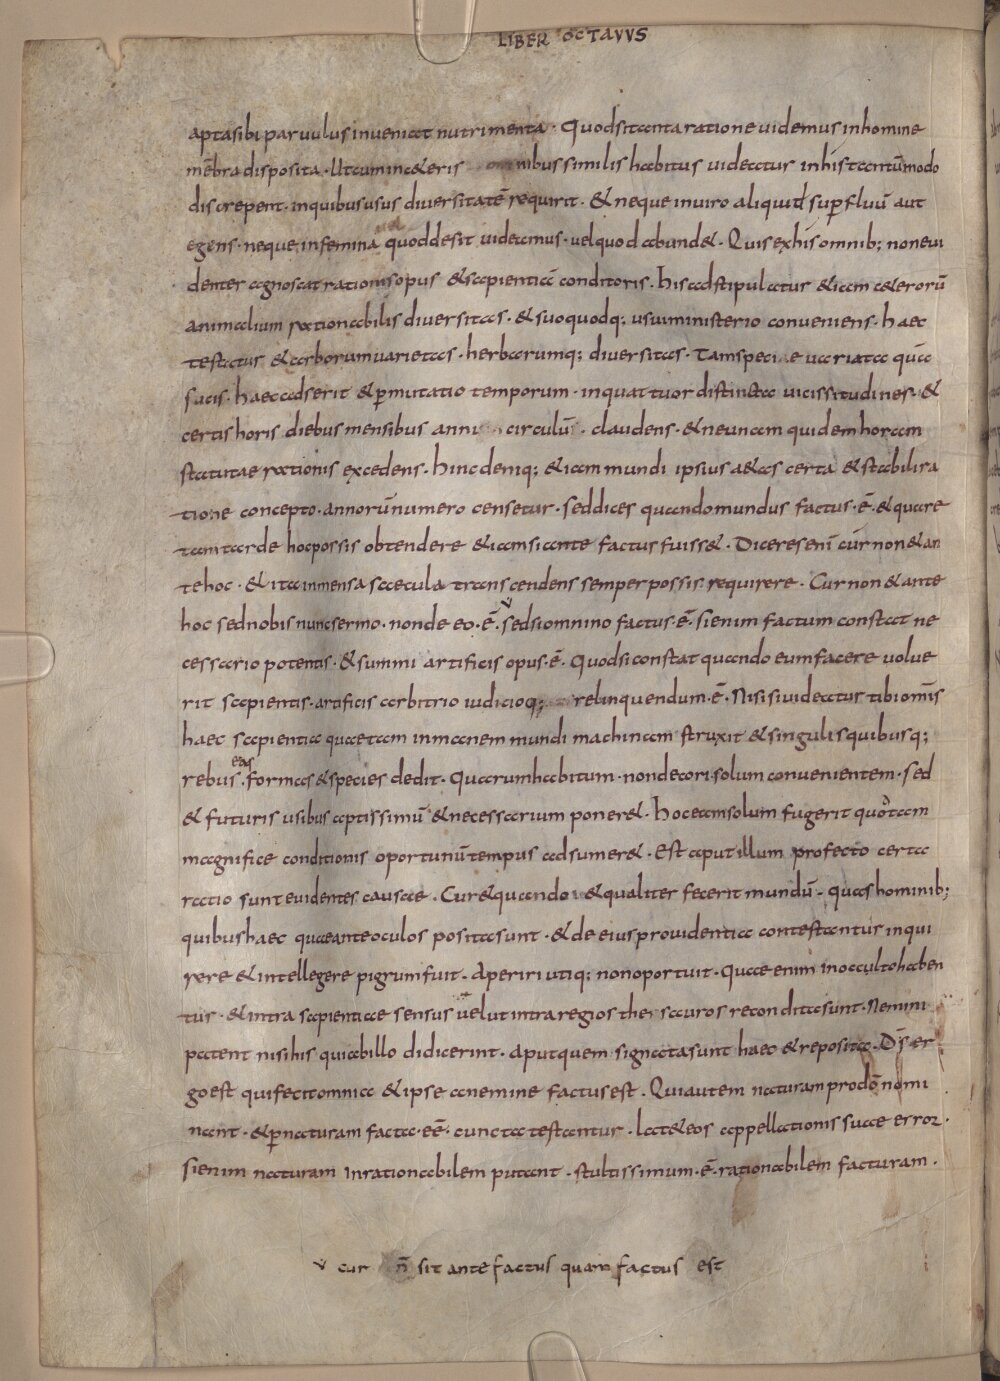 LIBER OCTAVVS
apta sibi paruulus inueniat nutrimenta. Quod sit tanta ratione uidemus in homine
mēbra disposita. Ut cum in c&eris omnibus similis habitus uideatur in his tantūmodo
discrepent. in quibus usus diuersitatē requirit. & neque in uiro aliquid suꝑfluū aut
egens. neque in femina uel quod desit uidemus. uel quod abund&. Quis ex his omnib; non eui
denter agnoscat rationis opus & sapientia conditoris. his adstipulatur & iam c&erorū
animalium rationabilis diuersitas. & suo quodq; usui ministerio conueniens. haec
testatur & arborum uarietas. herbarumq; diuersitas. Tam specie uariata quā
sucis. haec adserit & ꝑmutatio temporum. in quattuor distincta uicissitudines. &
certis horis diebus mensibus anni circulū. claudens. & ne unam quidem horam
statutae rationis excedens. hinc deniq; & iam mundi ipsius a&as certa & stabili ra
tione concepto. annorū numero censetur. sed dices quando mundus factus. ē. & quare
tam tarde hoc possis obtendere & iam si ante factus fuiss&. Dicere sēnī cur non & an
te hoc. & ita inmensa saecula transcendens semper possis requirere. Cur non & ante
hoc sed nobis nunc sermo. non de eo. ē. sed si omnino factus. ē. si enim factum constat ne
cessario potentis. & summi artificis opus. ē. Quod si constat quando eum facere uolue
rit sapientis. artificis arbitrio iudicioq; relinquendum. ē. Nisi si uideatur tibi om̄is
haec sapientia quae tam inmanem mundi machinam struxit & singulis quibusq;
rebus eas. formas & species dedit. Quarum habitum. non decori solum conuenientem. sed
& futuris usibus aptissimū & necessarium poner&. hoc eam solum fugerit quō tam
magnifice conditionis oportunū tempus adsumer&. Est aput illum profecto certa
ratio sunt euidentes causae. Cur & quando & qualiter fecerit mundū. quas hominib;
quibus haec quae ante oculos posita sunt. & de eius prouidentia contestantus inqui
rere & intellegere pigrum fuit. aperiri utiq; non oportuit. Quae enim in occulto haben
tur. & intra sapientiae sensus uelut intra regios thesauros recondita sunt. Nemini
patent nisi his qui ab illo didicerint. aput quem signata sunt haec & reposita. D̄s er
go est qui fecit omnia & ipse a nemine factus est. Qui autem naturam pro dō nomi
nant. & ꝑ naturam facta. eē. cuncta testantur. lat& eos appellationis suae error.
si enim naturam inrationabilem putant. stultissimum. ē. rationabilem facturam.
cur n̄ sit ante factus quam factus est